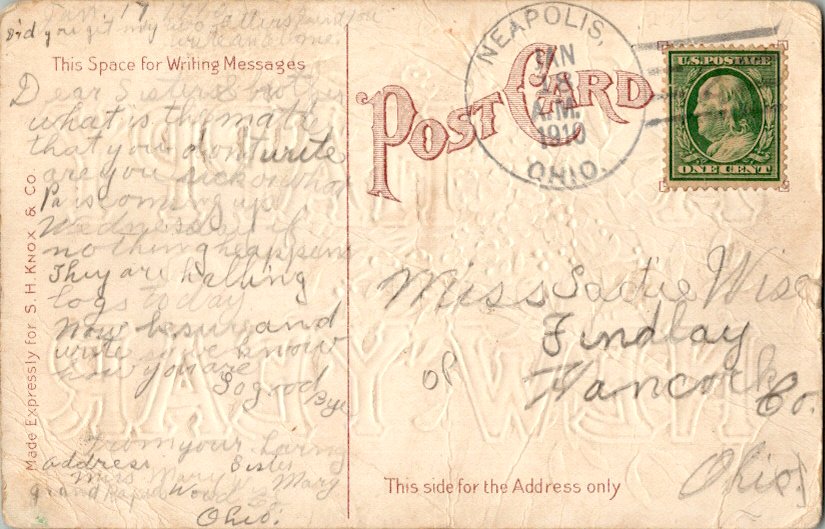 Jan 17 1910
did you get my two letters
write and
This Space for Writing Messages
Dear Sister & brother
what is the matter
that you dont write
are you sick or what
Pa is coming up
Wednesday if
nothing happens
They are halling
logs today
Now be sure and
write so we know
how you are
So good Bye
From your loving
Sister
Mary
address
Miss Mary
Grand Rapids Wood Co
Ohio.
Made Expressly for S. H. Knox & Co
POST CARD
NEAPOLIS,
JAN
18
A.M.
1910
OHIO.
U.S. POSTAGE
ONE CENT
Miss Sadie Wise
Findlay
Hancock
Co.
Ohio.
This side for the Address only
HAPPY
NEW YEAR